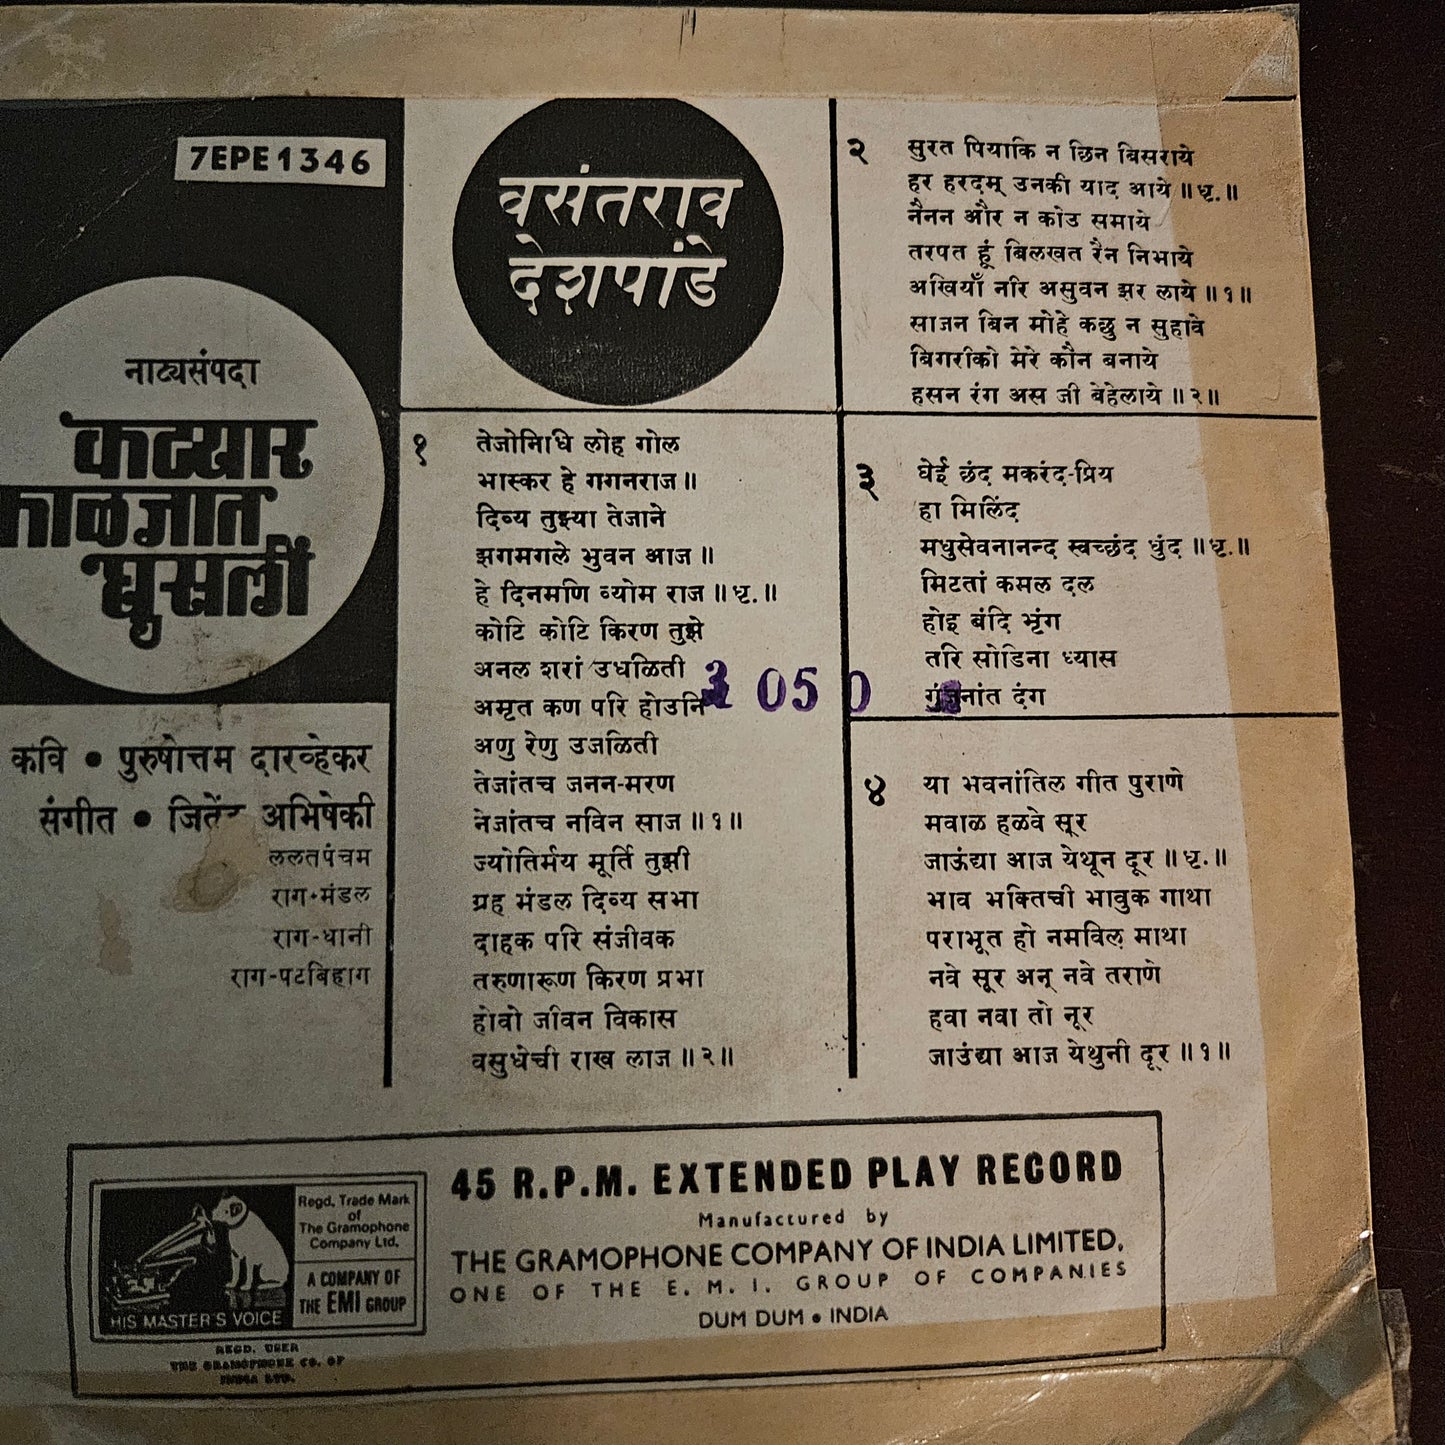 7EPE1346
नाट्यसंपदा
कट्यार
काळजात
घुसली
कवि • पुरुषोत्तम दारव्हेकर
संगीत • अभिषेकी
ललतपंचम
राग-मंडल
राग-धानी
राग-पटबिहाग
वसंतराव
देशपांडे
१
तेजोनिधि लोह गोल
भास्कर हे गगनराज॥
दिव्य तुझ्या तेजाने
झगमगले भुवन आज॥
हे दिनमणि व्योम राज॥धृ.॥
कोटि कोटि किरण तुझे
अनल शरां उधळिती
अमृत कण परि होउनि
अणु रेणु उजळिती
तेजांतच जनन-मरण
नेजांतच नविन साज॥१॥
ज्योतिर्मय मूर्ति तुझी
ग्रह मंडल दिव्य सभा
दाहक परि संजीवक
तरुणारूण किरण प्रभा
होवो जीवन विकास
वसुधेची राख लाज॥२॥
२
सुरत पियाकि न छिन बिसराये
हर हरदम् उनकी याद आये॥धृ.॥
नैनन और न कोउ समाये
तरपत हूं बिलखत रैन निभाये
अखियाँ नरि असुवन झर लाये॥१॥
साजन बिन मोहे कछु न सुहावे
बिगरीको मेरे कौन बनाये
हसन रंग अस जी बेहेलाये॥२॥
३
घेई छंद मकरंद-प्रिय
हा मिलिंद
मधुसेवनानन्द स्वच्छंद धुंद॥धृ.॥
मिटतां कमल दल
होइ बंदि भृंग
तरि सोडिना ध्यास
गुंजनांत दंग
४
या भवनांतिल गीत पुराणे
मवाळ हळवे सूर
जाऊंद्या आज येथून दूर॥धृ.॥
भाव भक्तिची भावुक गाथा
पराभूत हो नमविल माथा
नवे सूर अन् नवे तराणे
हवा नवा तो नूर
जाउंद्या आज येथुनी दूर॥१॥
050
Regd. Trade Mark
of
The Gramophone
Company Ltd.
A COMPANY OF
THE EMI GROUP
HIS MASTER'S VOICE
REGD. USER
THE GRAMOPHONE CO. OF
INDIA LTD.
45 R.P.M. EXTENDED PLAY RECORD
Manufactured by
THE GRAMOPHONE COMPANY OF INDIA LIMITED.
ONE OF THE E. M. I. GROUP OF COMPANIES
DUM DUM • INDIA